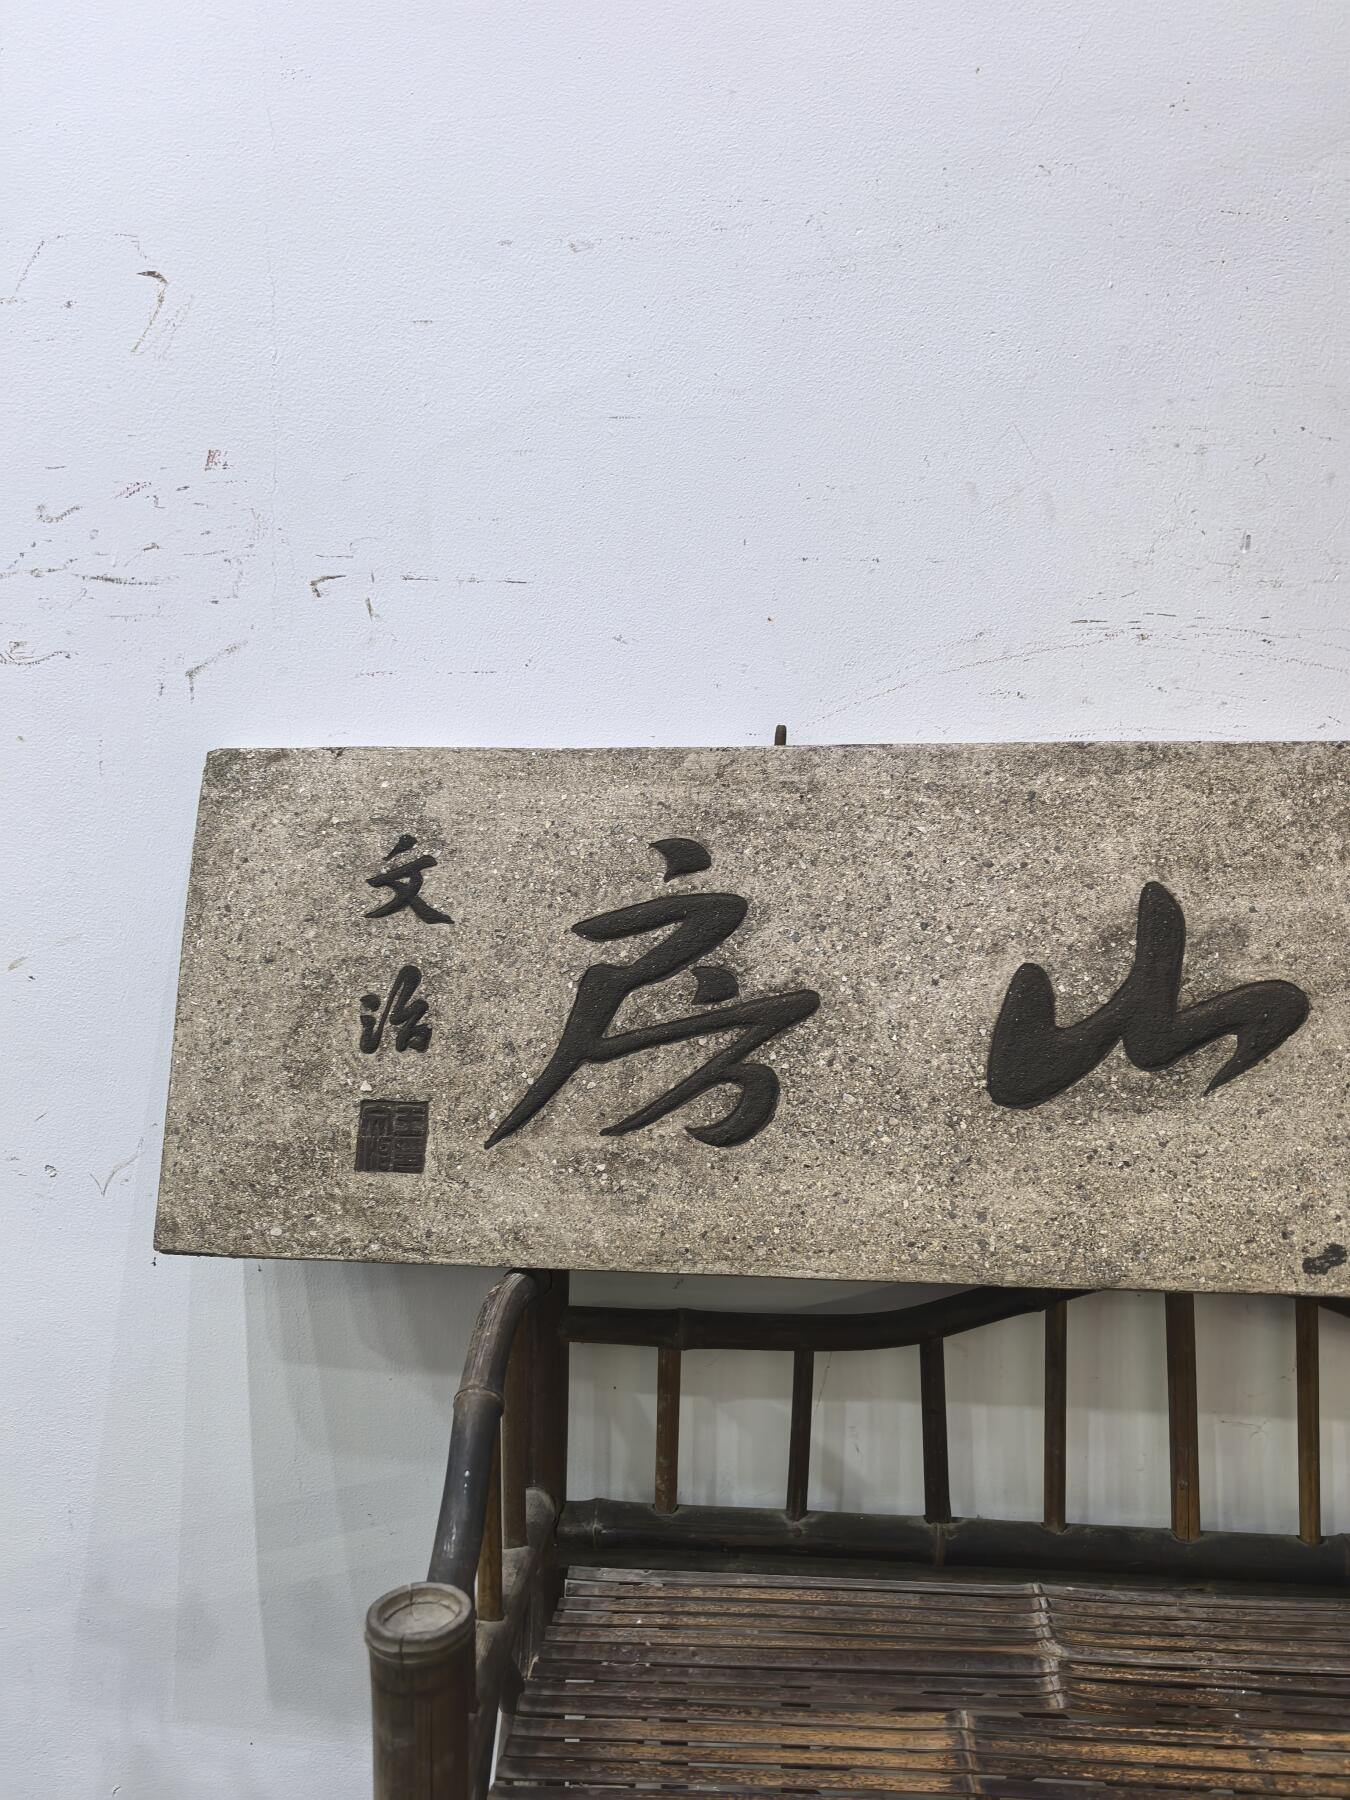 山房
文治